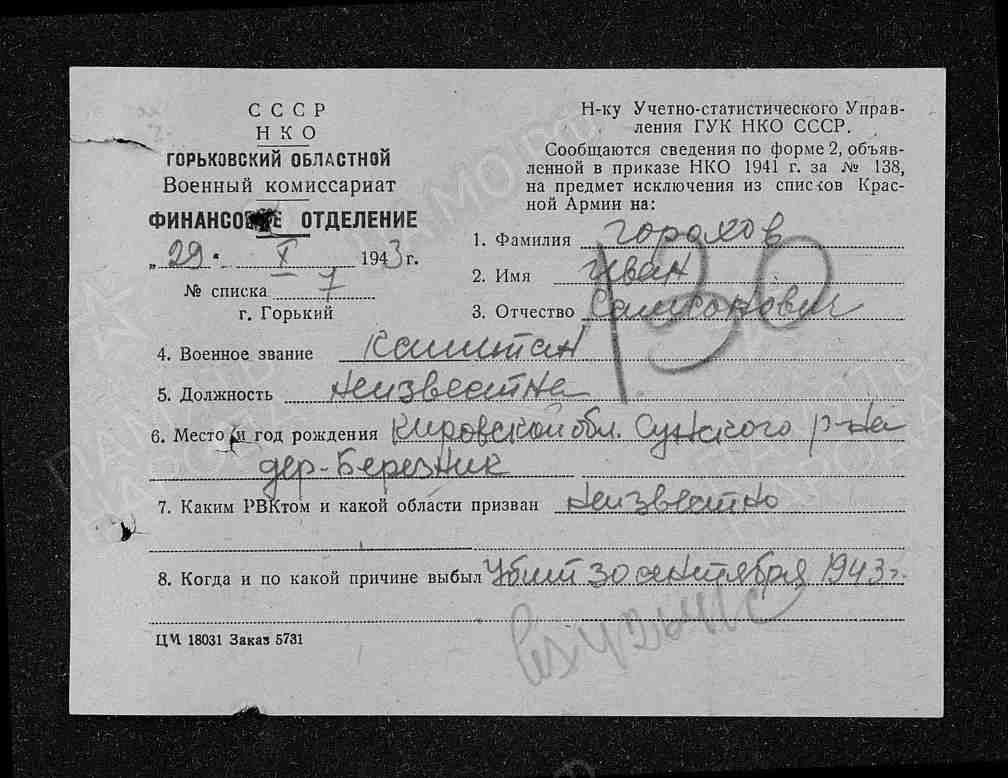 СССР
НКО
ГОРЬКОВСКИЙ ОБЛАСТНОЙ
Военный комиссариат
ФИНАНСОВОЕ ОТДЕЛЕНИЕ
„29" X 1943 г.
№ списка 7
г. Горький
Н-ку Учетно-статистического Управ-
ления ГУК НКО СССР.
Сообщаются сведения по форме 2, объяв-
ленной в приказе НКО 1941 г. за № 138,
на предмет исключения из списков Крас-
ной Армии на:
1. Фамилия Горохов
2. Имя Иван
3. Отчество Самсонович
130
4. Военное звание Капитан
5. Должность неизвестна
6. Место и год рождения Кировской обл. Сунского р-на
дер-Березник
7. Каким РВКтом и какой области призван неизвестно
8. Когда и по какой причине выбыл Убит 30 сентября 1943 г.
ЦМ 18031 Заказ 5731
ПАМЯТЬ НАРОДА